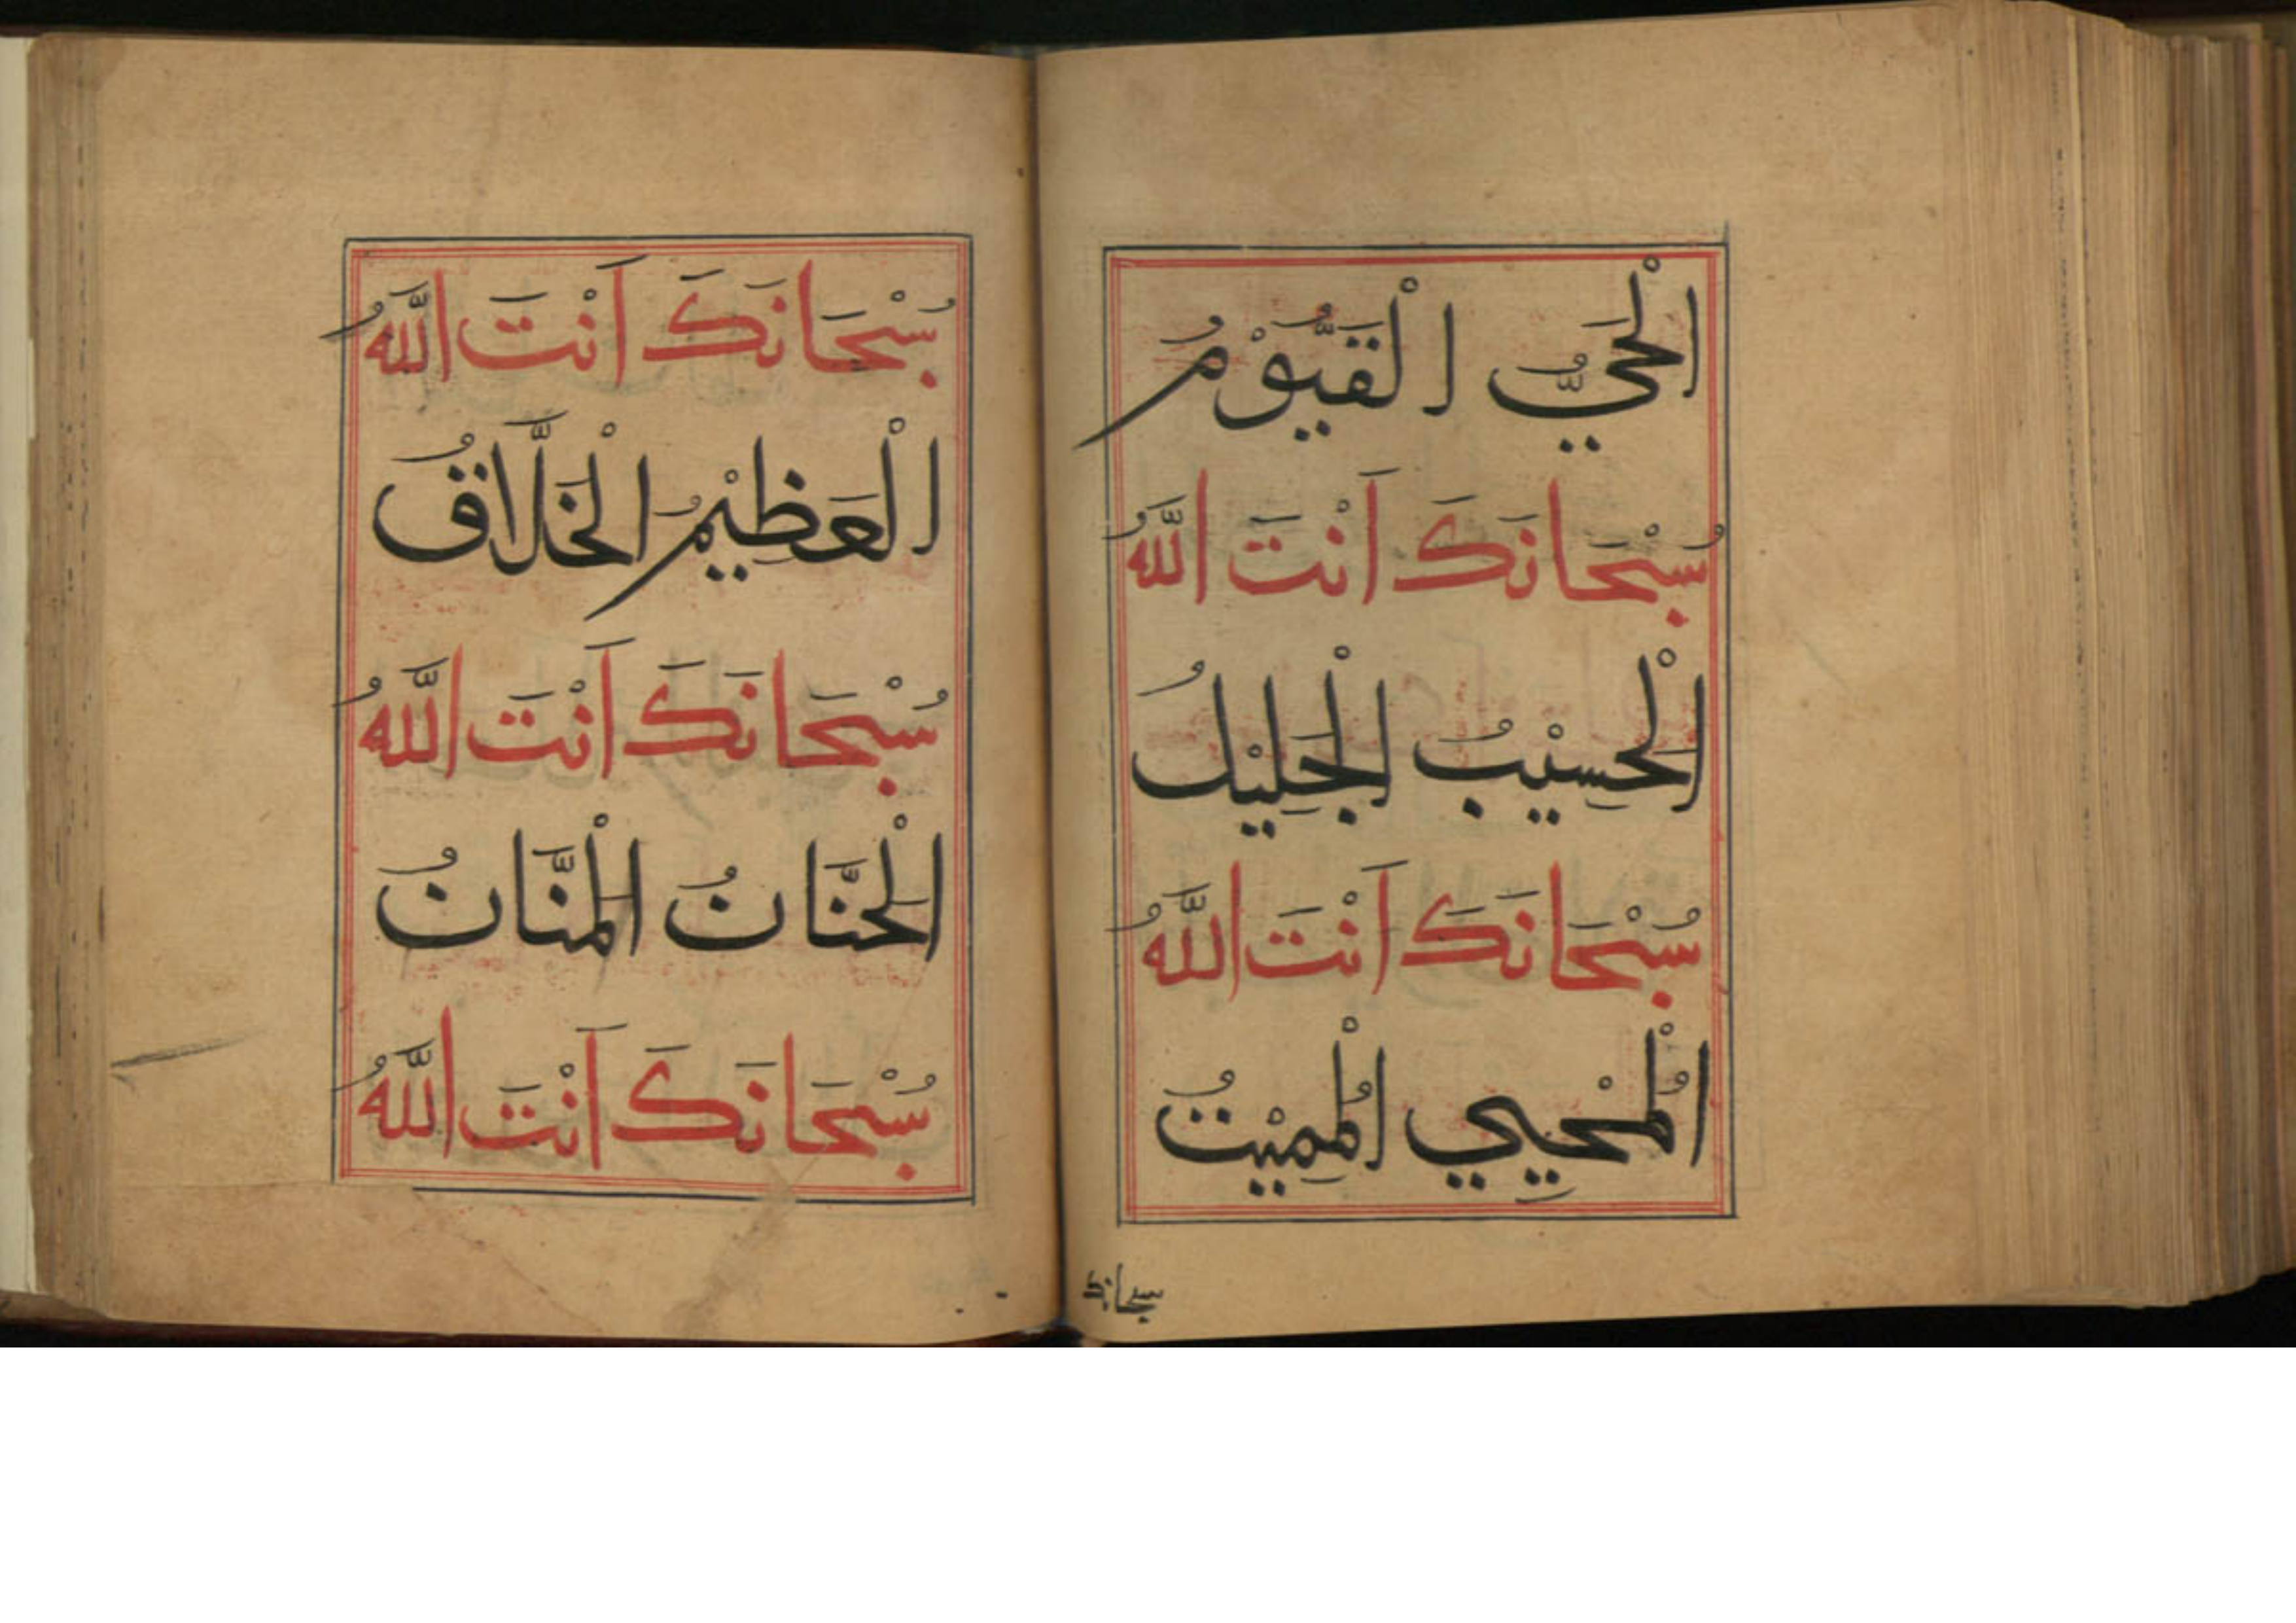 الْحَيُّ الْقَيُّوْمُ
سُبْحَانَكَ اَنْتَ اللّٰهُ
الْحَسِيْبُ الْجَلِيْلُ
سُبْحَانَكَ اَنْتَ اللّٰهُ
الْمُحْيِي الْمُمِيْتُ
سبحانك
سُبْحَانَكَ اَنْتَ اللّٰهُ
الْعَظِيْمُ الْخَلَّاقُ
سُبْحَانَكَ اَنْتَ اللّٰهُ
الْحَنَّانُ الْمَنَّانُ
سُبْحَانَكَ اَنْتَ اللّٰهُ